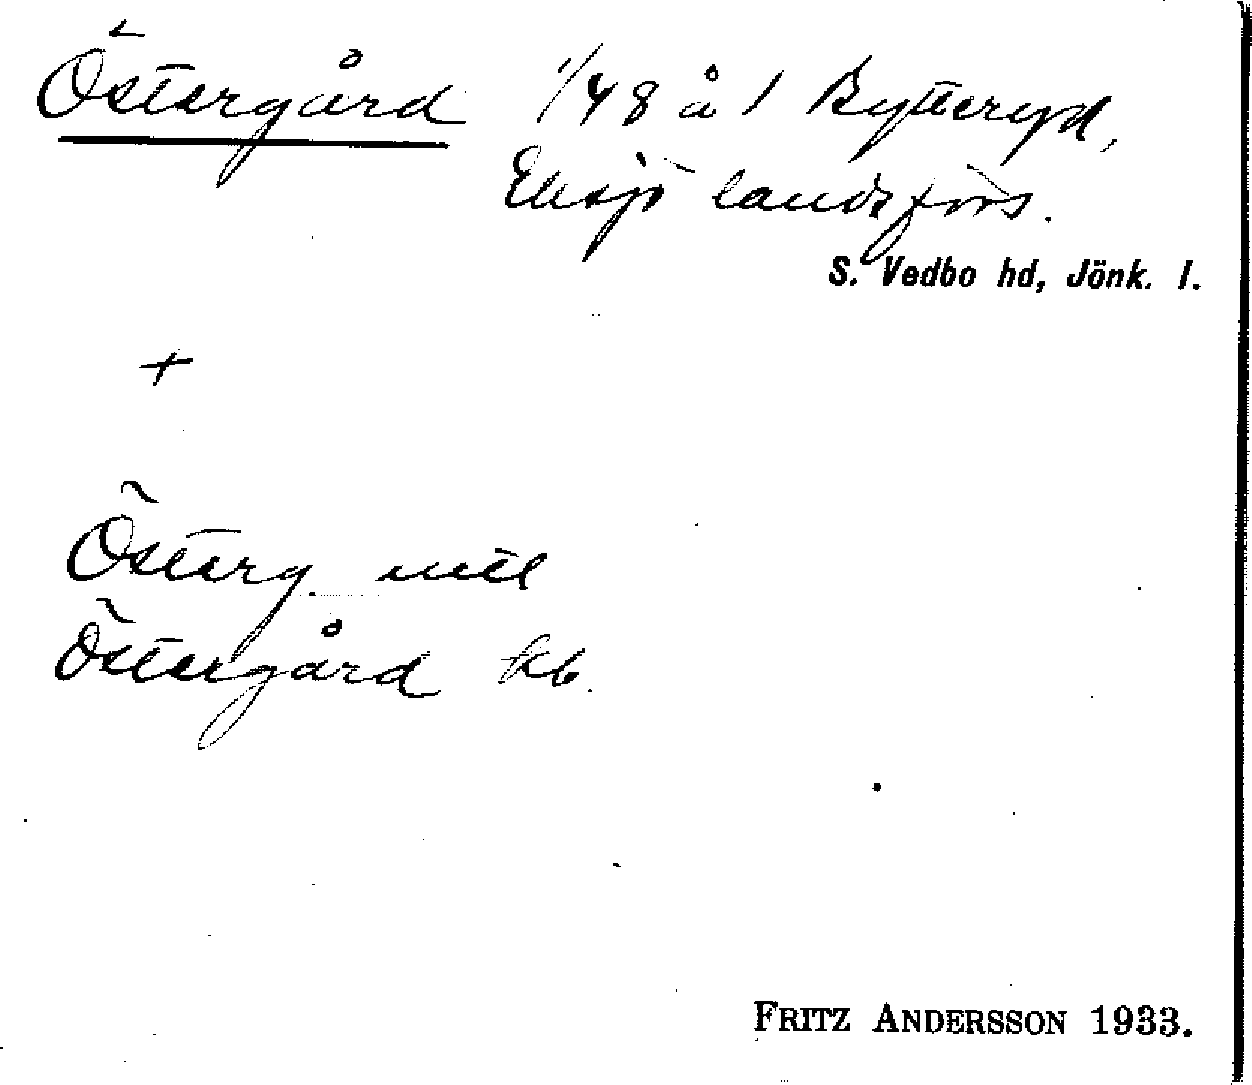 Östergård 1/48 å 1 Bytteryd,
Eksjö landsförs.
S. Vedbo hd, Jönk. l.
+
Österg.
Östergård kb.
FRITZ ANDERSSON 1933.